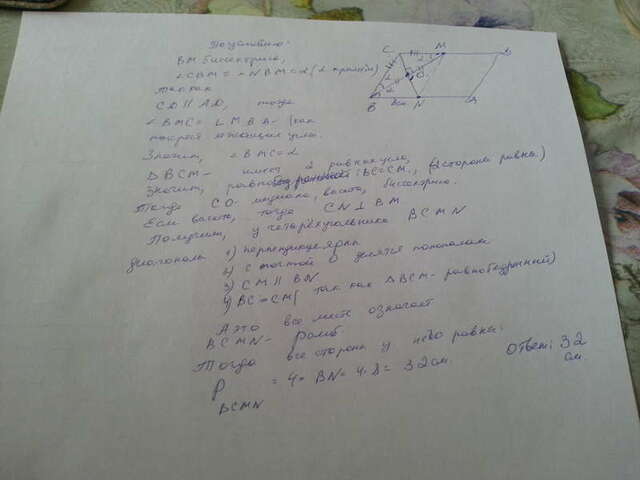 Поуглубно:
BM биссектриса,
∠CBM = ∠NBM = α (2 крат)
так как
CD || AD, тогда
∠BMC = ∠MBA - (как
накрест лежащие углы.
Значит, ∠BMC = α
ΔBCM - имеет 2 равных угла,
Значит, равнобедренный: BC = CM, (2 сторона равна.)
Тогда CO - медиана, высота, биссектриса.
Если высота, тогда CN ⊥ BM
Получим, у четырёхугольника BCMN
диагонали 1) перпендикулярны
2) с точкой O делятся пополам
3) CM || BN
4) BC = CM (так как ΔBCM - равнобедренный)
А это все вместе означает
BCMN - Ромб.
Тогда все стороны у него равны:
P = 4 · BN = 4 · 8 = 32 см.
BCMN
Ответ: 32
см.
C M D
O
B 8см N A